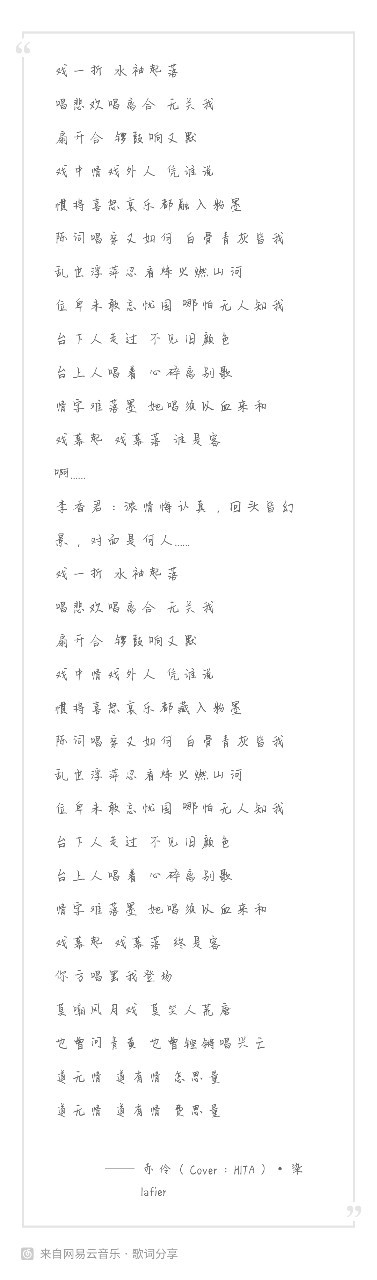 戏一折 水袖起落
唱悲欢唱离合 无关我
扇开合 锣鼓响又默
戏中情戏外人 凭谁说
惯将喜怒哀乐都融入粉墨
陈词唱穿又如何 白骨青灰皆我
乱世浮萍忍看烽火燃山河
位卑未敢忘忧国 哪怕无人知我
台下人走过 不见旧颜色
台上人唱着 心碎离别歌
情字难落墨 她唱须以血来和
戏幕起 戏幕落 谁是客
啊……
李香君：浓情悔认真，回头皆幻
景，对面是何人……
戏一折 水袖起落
唱悲欢唱离合 无关我
扇开合 锣鼓响又默
戏中情戏外人 凭谁说
惯将喜怒哀乐都藏入粉墨
陈词唱穿又如何 白骨青灰皆我
乱世浮萍忍看烽火燃山河
位卑未敢忘忧国 哪怕无人知我
台下人走过 不见旧颜色
台上人唱着 心碎离别歌
情字难落墨 她唱须以血来和
戏幕起 戏幕落 终是客
你方唱罢我登场
莫嘲风月戏 莫笑人荒唐
也曾问青黄 也曾铿锵唱兴亡
道无情 道有情 怎思量
道无情 道有情 费思量
—— 赤伶（Cover：HITA）• 染
lafier
来自网易云音乐·歌词分享